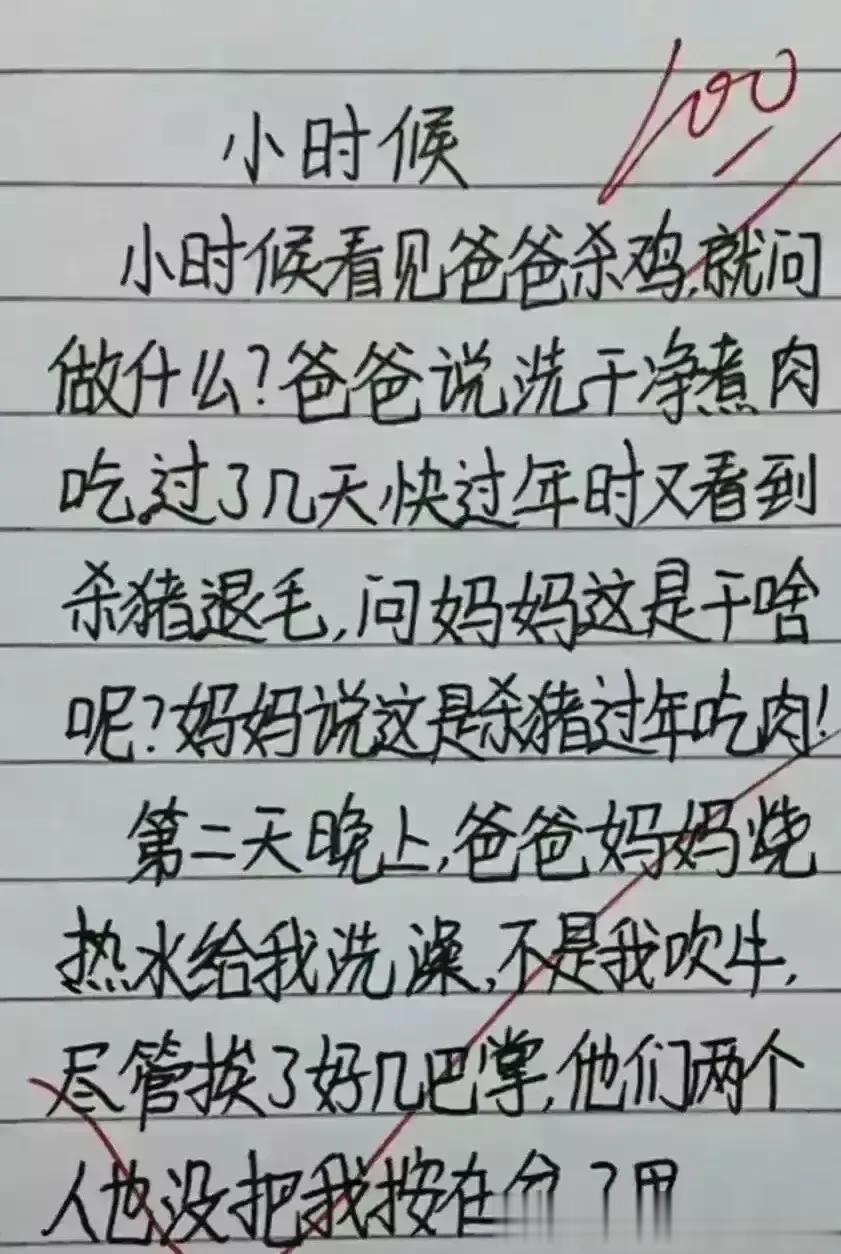 100
小时候
小时候看见爸爸杀鸡,就问
做什么?爸爸说洗干净煮肉
吃。过了几天快过年时又看到
杀猪退毛,问妈妈这是干啥
呢?妈妈说这是杀猪过年吃肉!
第二天晚上,爸爸妈妈烧
热水给我洗澡,不是我吹牛,
尽管挨了好几巴掌,他们两个
人也没把我按在